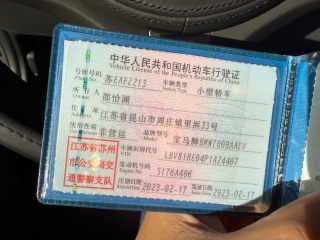 中华人民共和国机动车行驶证
Vehicle License of the People's Republic of China
号牌号码 苏EAFZ213 车辆类型 小型轿车
Plate No. Vehicle Type
所有人 邵怡渊
Owner
住址 江苏省昆山市周庄镇里浜33号
Address
使用性质 非营运 品牌型号 宝马牌BMW7000AAEV
Use Character Model
江苏省苏州
市公安局交
通警察支队
车辆识别代号 LBV81BE04P1A24407
VIN
发动机号码 S176A406
Engine No.
注册日期 2023-02-17 发证日期 2023-02-17
Register Date Issue Date